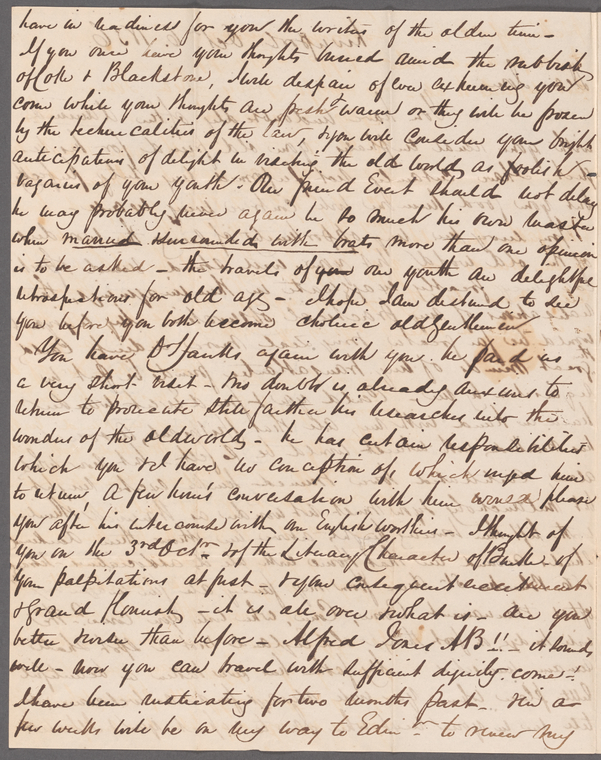 have in readiness for you the writers of the olden time -
If you once seize your thoughts buried amid the rubbish
of Coke & Blackstone, I will despair of ever expecting you
come while your thoughts are fresh & warm or they will be frozen
by the technicalities of the law, & you will consider your bright
anticipations of delight in visiting the old world, as foolish -
vagaries of your youth. Our friend Evert should not delay
he may probably never again be so much his own master
when married & surrounded with brats more than one opinion
is to be asked - the travels of your our youth are delightful
retrospections for old age - I hope I am destined to see
you before you both become choleric old Gentlemen
You have Dr Hawks again with you. he paid us
a very short visit - & no doubt is already anxious to
return to prosecute still farther his researches into the
wonders of the old world - he has certain responsibilities
which you & I have no conception of, which urged him
to return. A few hours conversation with him would please
you after his intercourse with our English worthies - I thought of
you on the 3rd Octr & of the Literary Character of Burke of
your palpitations at first - & your consequent excitement
& Grand flourish - it is all over & what is - are you
better & worse than before - Alfred Jones AB!! - it sounds
well - now you can travel with sufficient dignity come!
I have been rusticating for two months past - & in a
few weeks will be on my way to Edinr to renew my